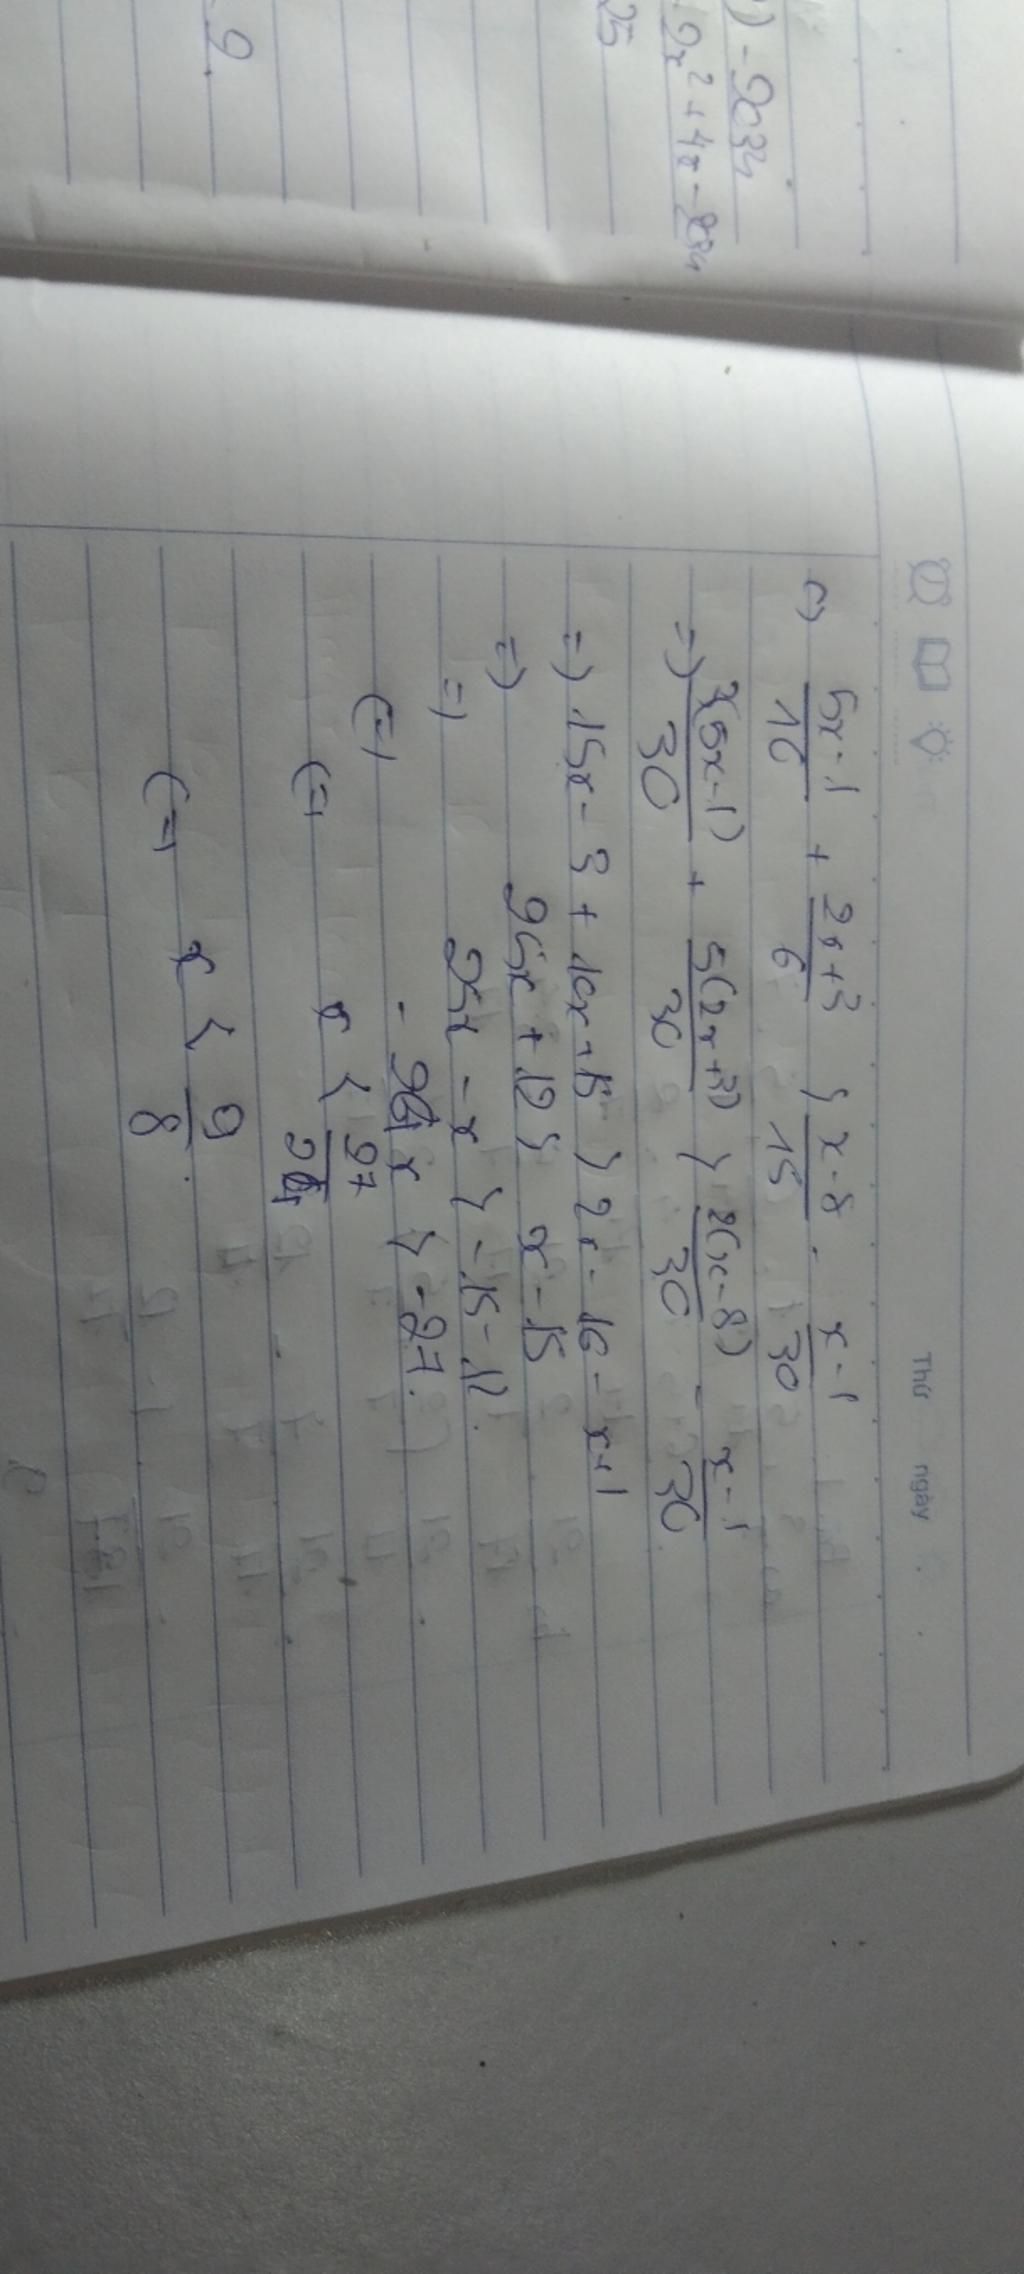 ) - 2034
9x² + 4x - 2034
25
9
Thứ ngày
c) \frac{5x-1}{10} + \frac{2x+3}{6} > \frac{x-8}{15} - \frac{x-1}{30}
=) \frac{3(5x-1)}{30} + \frac{5(2x+3)}{30} > \frac{2(x-8)}{30} - \frac{x-1}{30}
=) 15x - 3 + 10x + 15 > 2x - 16 - x + 1
=) 25x + 12 > x - 15
=) 25x - x > -15 - 12
(=) - 24x > -27.
(=) x < \frac{27}{24}
(=) x < \frac{9}{8}.